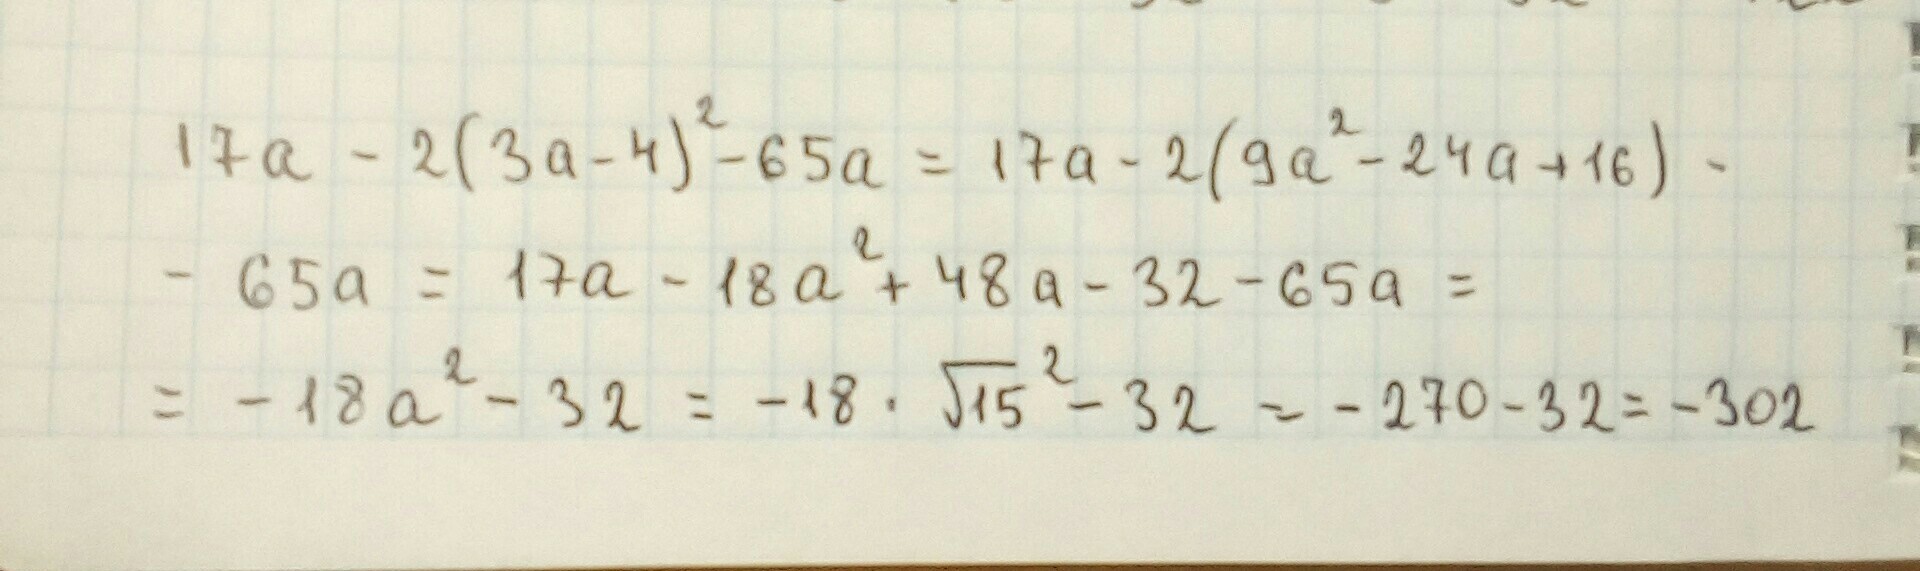 17a - 2(3a-4)² - 65a = 17a - 2(9a² - 24a + 16) -
- 65a = 17a - 18a² + 48a - 32 - 65a =
= - 18a² - 32 = - 18 · √15² - 32 = - 270 - 32 = - 302